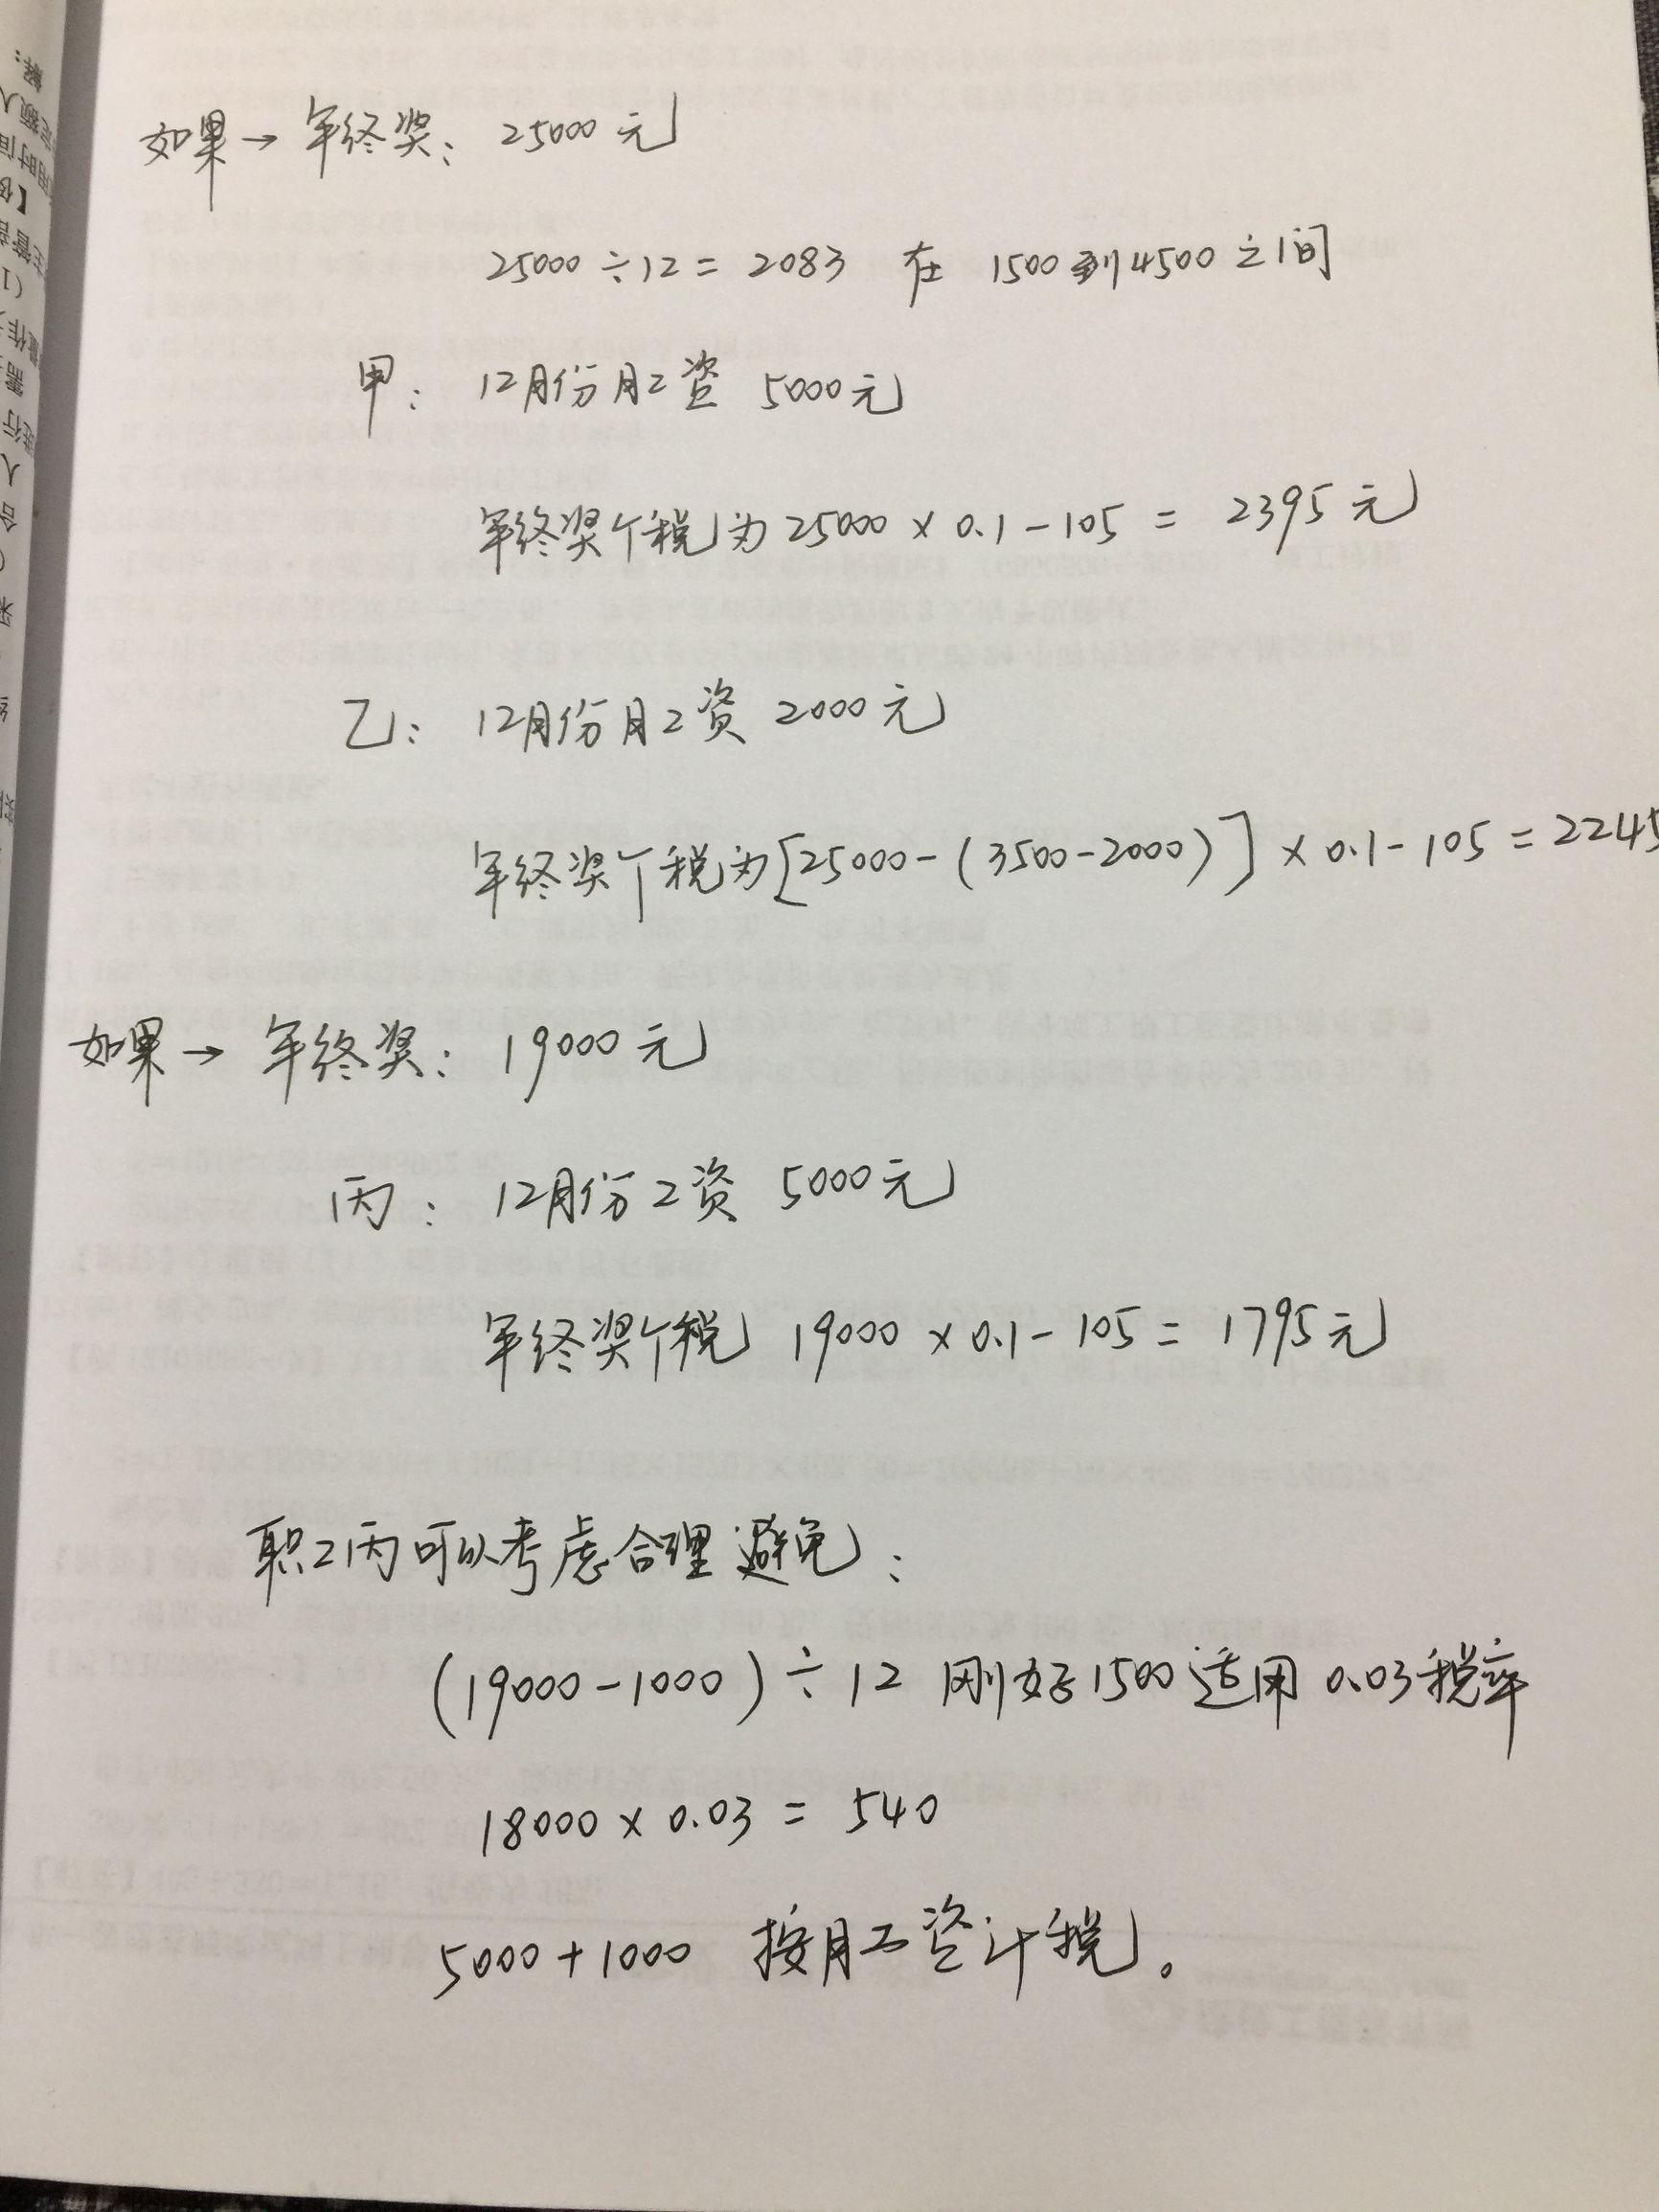 如果→ 年终奖: 25000 元
25000 ÷ 12 = 2083 在 1500 到 4500 之间
甲: 12月份月工资 5000元
年终奖个税为 25000 × 0.1 - 105 = 2395 元
乙: 12月份月工资 2000 元
年终奖个税为 [25000 - (3500-2000)] × 0.1 - 105 = 2245
如果→ 年终奖: 19000 元
丙: 12月份工资 5000元
年终奖个税 19000 × 0.1 - 105 = 1795元
职工丙可以考虑合理避免:
(19000-1000) ÷ 12 刚好1500适用 0.03税率
18000 × 0.03 = 540
5000 + 1000 按月工资计税。